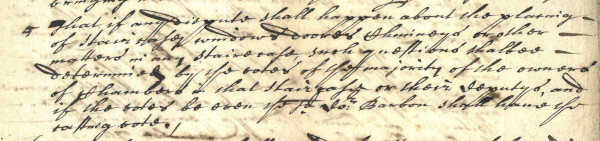 4 That if any dispute shall happen about the placeing
of Stair cases windows doores Chimneys or other
matters in any Staire case, such questions shalbee
determined by the votes of the majority of the owners
of Chambers in that Stair case or their deputys, and
if the votes be even the sd. Dor. Barbon shall have the
casting vote,